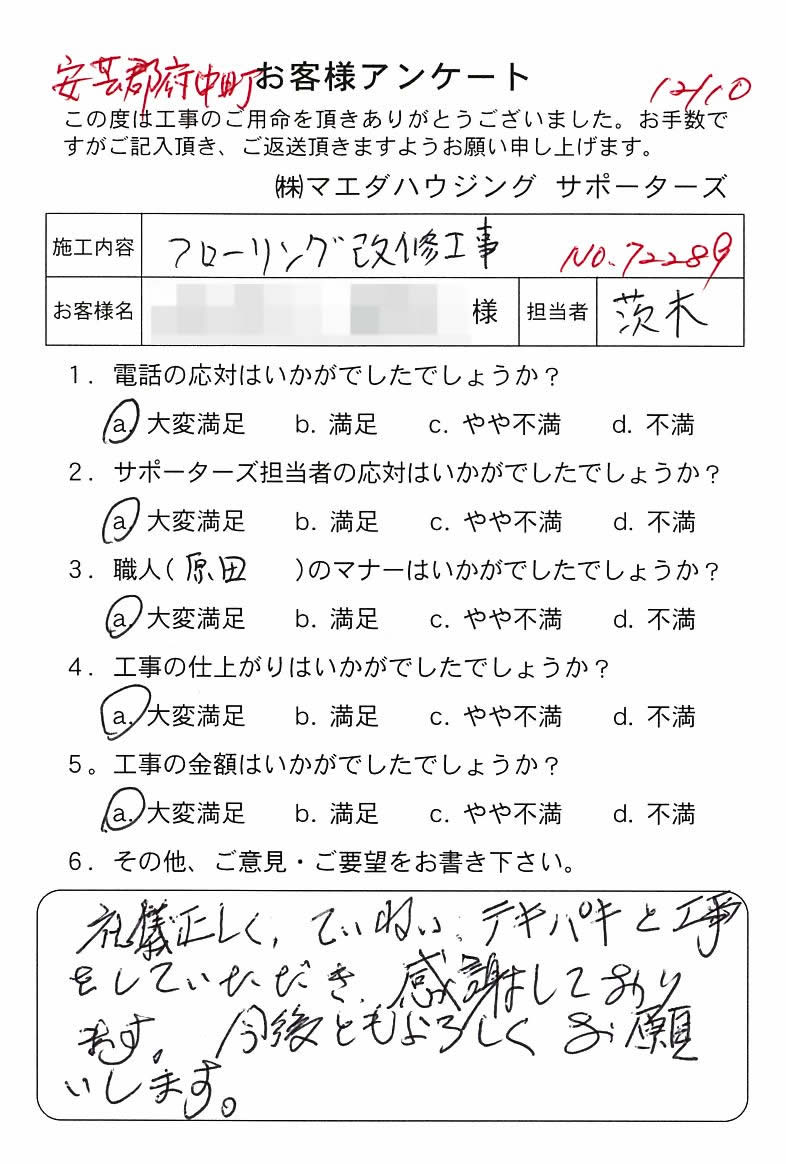 安芸郡府中町 お客様アンケート 12/10
この度は工事のご用命を頂きありがとうございました。お手数で
すがご記入頂き、ご返送頂きますようお願い申し上げます。
㈱マエダハウジング サポーターズ
施工内容 フローリング改修工事 NO.72289
お客様名 様 担当者 茨木
1. 電話の応対はいかがでしたでしょうか?
a. 大変満足 b. 満足 c. やや不満 d. 不満
2. サポーターズ担当者の応対はいかがでしたでしょうか?
a. 大変満足 b. 満足 c. やや不満 d. 不満
3. 職人(原田 )のマナーはいかがでしたでしょうか?
a. 大変満足 b. 満足 c. やや不満 d. 不満
4. 工事の仕上がりはいかがでしたでしょうか?
a. 大変満足 b. 満足 c. やや不満 d. 不満
5。工事の金額はいかがでしたでしょうか?
a. 大変満足 b. 満足 c. やや不満 d. 不満
6. その他、ご意見・ご要望をお書き下さい。
礼儀正しく、ていねい、テキパキと工事
をしていただき、感謝しており
ます。今後ともよろしくお願
いします。